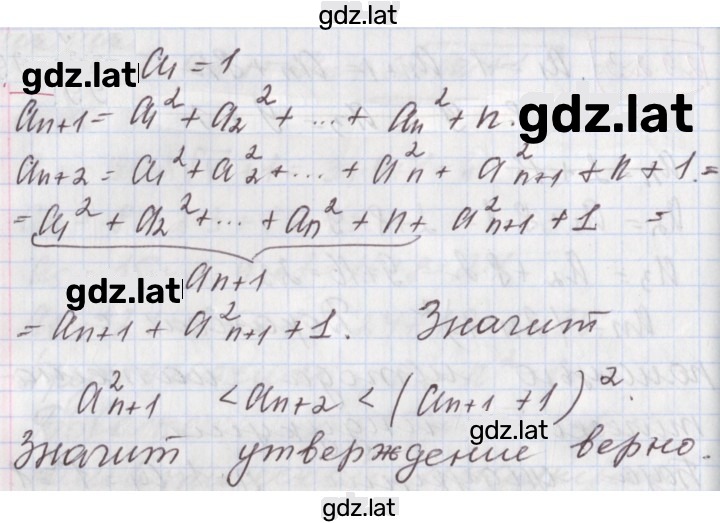 gdz.lat
gdz.lat a₁ = 1
aₙ₊₁ = a₁² + a₂² + ... + aₙ² + n. gdz.lat
aₙ₊₂ = a₁² + a₂² + ... + aₙ² + a²ₙ₊₁ + n + 1. =
= a₁² + a₂² + ... + aₙ² + n + a²ₙ₊₁ + 1 =
gdz.lat aₙ₊₁
= aₙ₊₁ + a²ₙ₊₁ + 1. Значит
a²ₙ₊₁ < aₙ₊₂ < (aₙ₊₁ + 1)².
gdz.lat
Значит утверждение верно.
gdz.lat